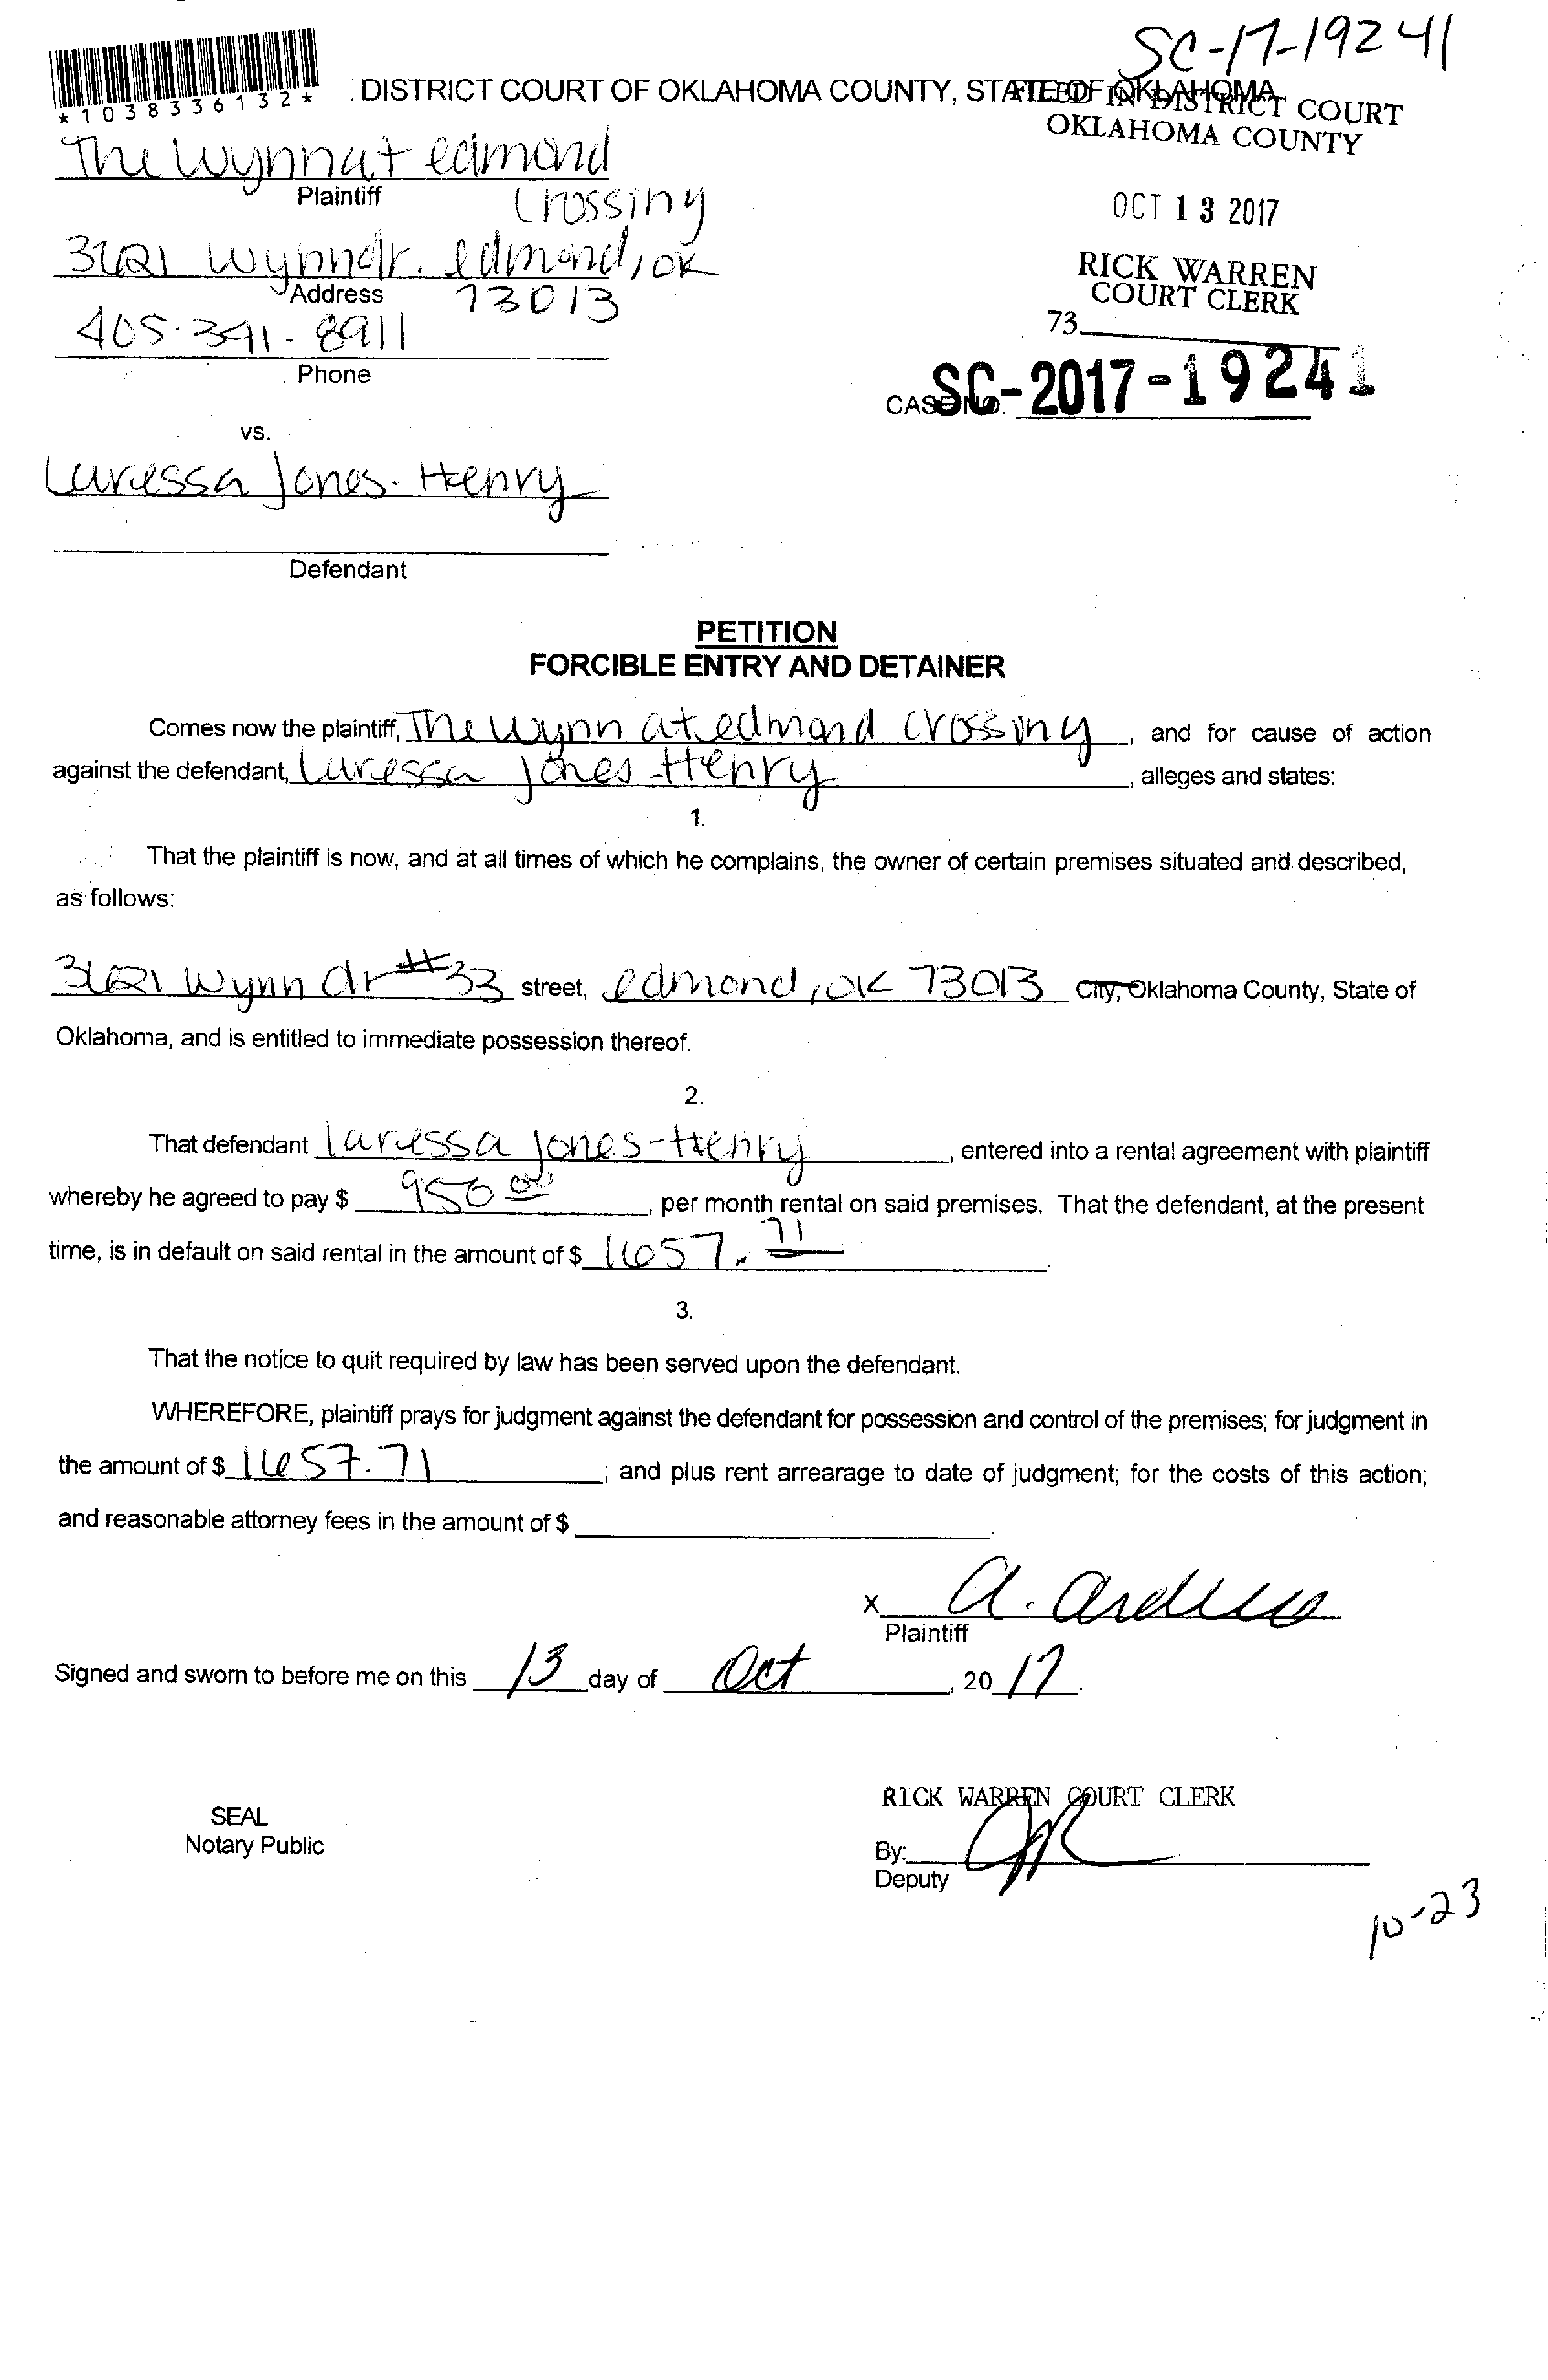 SC-17-19241
*1038336132*
DISTRICT COURT OF OKLAHOMA COUNTY, STATE OF OKLAHOMA
FILED IN DISTRICT COURT
OKLAHOMA COUNTY
The Wynn at edmond
Plaintiff
Crossing
OCT 13 2017
3621 Wynn dr. edmond, OK
Address
73013
RICK WARREN
COURT CLERK
405-341-8911
73
Phone
CASE NO. SC-2017-19241
vs.
Laressa Jones-Henry
Defendant
PETITION
FORCIBLE ENTRY AND DETAINER
Comes now the plaintiff, The Wynn at edmond crossing, and for cause of action
against the defendant, Laressa Jones-Henry, alleges and states:
1.
That the plaintiff is now, and at all times of which he complains, the owner of certain premises situated and described,
as follows:
3621 Wynn dr #33 street, edmond, OK 73013 City, Oklahoma County, State of
Oklahoma, and is entitled to immediate possession thereof.
2.
That defendant laressa Jones-Henry, entered into a rental agreement with plaintiff
whereby he agreed to pay $ 950 00, per month rental on said premises. That the defendant, at the present
time, is in default on said rental in the amount of $ 1657.71.
3.
That the notice to quit required by law has been served upon the defendant.
WHEREFORE, plaintiff prays for judgment against the defendant for possession and control of the premises; for judgment in
the amount of $ 1657.71; and plus rent arrearage to date of judgment; for the costs of this action;
and reasonable attorney fees in the amount of $
X
Plaintiff
Signed and sworn to before me on this 13 day of Oct, 2017.
RICK WARREN COURT CLERK
SEAL
Notary Public
By:
Deputy
10-23